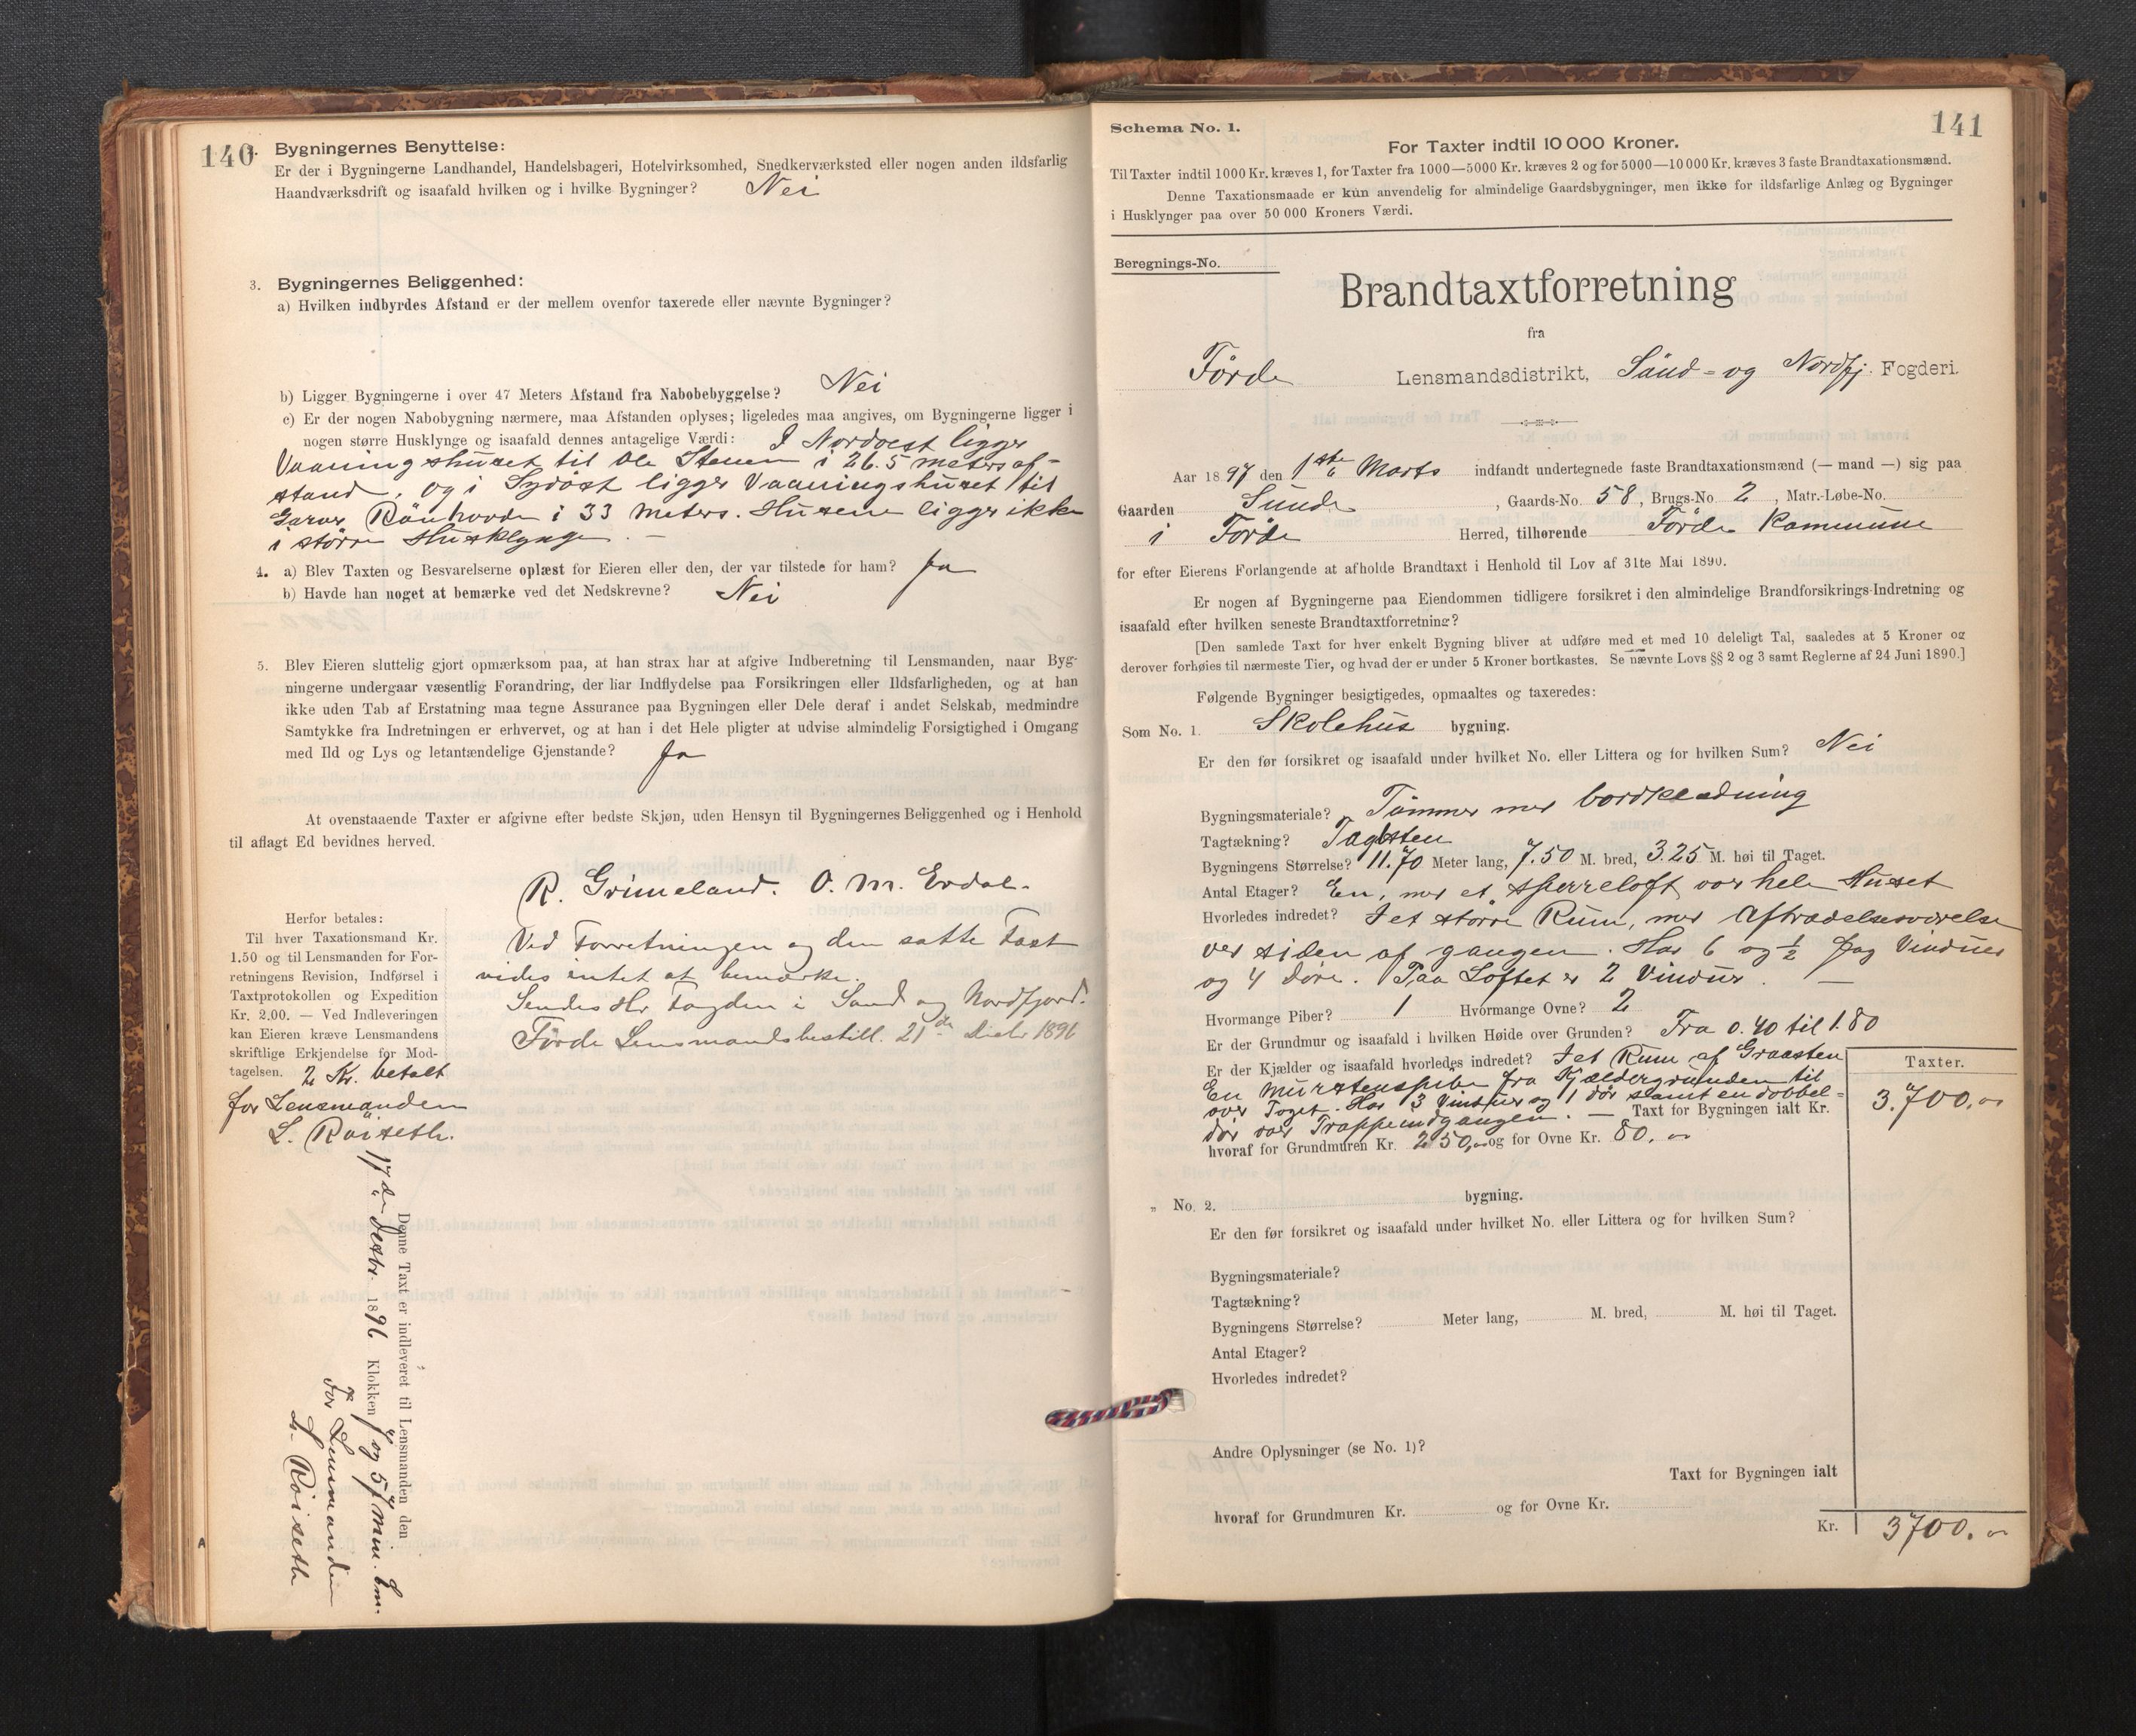 140
Bygningernes Benyttelse:
Er der i Bygningerne Landhandel, Handelsbageri, Hotelvirksomhed, Snedkerværksted eller nogen anden ildsfarlig
Haandværksdrift og isaafald hvilken og i hvilke Bygninger? Nei
3. Bygningernes Beliggenhed:
a) Hvilken indbyrdes Afstand er der mellem ovenfor taxerede eller nævnte Bygninger?
b) Ligger Bygningerne i over 47 Meters Afstand fra Nabobebyggelse? Nei
c) Er der nogen Nabobygning nærmere, maa Afstanden oplyses; ligeledes maa angives, om Bygningerne ligger i
nogen større Husklynge og isaafald dennes antagelige Værdi: I Nordvest ligger
Vaaningshuset til Ole Stenen i 26.5 meters af-
stand, og i Sydøst ligger Vaaningshuset til
Garver i 33 meters. Husene ligger ikke
i større Husklynge. —
4. a) Blev Taxten og Besvarelserne oplæst for Eieren eller den, der var tilstede for ham? Ja
b) Havde han noget at bemærke ved det Nedskrevne? Nei
5. Blev Eieren sluttelig gjort opmærksom paa, at han strax har at afgive Indberetning til Lensmanden, naar Byg-
ningerne undergaar væsentlig Forandring, der har Indflydelse paa Forsikringen eller Ildsfarligheden, og at han
ikke uden Tab af Erstatning maa tegne Assurance paa Bygningen eller Dele deraf i andet Selskab, medmindre
Samtykke fra Indretningen er erhvervet, og at han i det Hele pligter at udvise almindelig Forsigtighed i Omgang
med Ild og Lys og letantændelige Gjenstande? Ja
At ovenstaaende Taxter er afgivne efter bedste Skjøn, uden Hensyn til Bygningernes Beliggenhed og i Henhold
til aflagt Ed bevidnes herved.
R. Grimeland. O. M. Erdal.
Ved Forretningen og den satte Taxt
vides intet at bemærke.
Sendes Hr Fogden i Sønd og Nordfjord.
Førde Lensmandsbestill. 21de Decbr 1896
Herfor betales:
Til hver Taxationsmand Kr.
1.50 og til Lensmanden for For-
retningens Revision, Indførsel i
Taxtprotokollen og Expedition
Kr. 2.00. — Ved Indleveringen
kan Eieren kræve Lensmandens
skriftlige Erkjendelse for Mod-
tagelsen. 2 Kr. betalt
for Lensmanden
L. Röiseth.
Denne Taxt er indleveret til Lensmanden den
17de Decbr. 1896 Klokken 1 og 57 Min. Em.
For Lensmanden
L. Röiseth
141
Schema No. 1.
For Taxter indtil 10 000 Kroner.
Til Taxter indtil 1000 Kr. kræves 1, for Taxter fra 1000—5000 Kr. kræves 2 og for 5000—10 000 Kr. kræves 3 faste Brandtaxationsmænd.
Denne Taxationsmaade er kun anvendelig for almindelige Gaardsbygninger, men ikke for ildsfarlige Anlæg og Bygninger
i Husklynger paa over 50 000 Kroners Værdi.
Beregnings-No.
Brandtaxtforretning
fra
Förde Lensmandsdistrikt, Sönd- og Nordfj. Fogderi.
Aar 1897 den 1ste Marts indfandt undertegnede faste Brandtaxationsmænd (— mand —) sig paa
Gaarden Sunde, Gaards-No. 58, Brugs-No. 2, Matr.-Løbe-No.
i Förde Herred, tilhørende Förde Kommune
for efter Eierens Forlangende at afholde Brandtaxt i Henhold til Lov af 31te Mai 1890.
Er nogen af Bygningerne paa Eiendommen tidligere forsikret i den almindelige Brandforsikrings-Indretning og
isaafald efter hvilken seneste Brandtaxtforretning?
[Den samlede Taxt for hver enkelt Bygning bliver at udføre med et med 10 deleligt Tal, saaledes at 5 Kroner og
derover forhøies til nærmeste Tier, og hvad der er under 5 Kroner bortkastes. Se nævnte Lovs §§ 2 og 3 samt Reglerne af 24 Juni 1890.]
Følgende Bygninger besigtigedes, opmaaltes og taxeredes:
Som No. 1. Skolehus bygning.
Er den før forsikret og isaafald under hvilket No. eller Littera og for hvilken Sum? Nei
Bygningsmateriale? Tömmer med bordklædning
Tagtækning? Tagsten
Bygningens Størrelse? 11.70 Meter lang, 7.50 M. bred, 3.25 M. høi til Taget.
Antal Etager? En, med et sperreloft over hele Huset
Hvorledes indredet? I et större Rum, med Aftrædelsesværelse
ved siden af gangen. Har 6 og ½ fag Vinduer
og 4 döre. Paa Loftet er 2 Vinduer. —
Hvormange Piber? 1 Hvormange Ovne? 2
Er der Grundmur og isaafald i hvilken Høide over Grunden? Fra 0.40 til 1.80
Er der Kjælder og isaafald hvorledes indredet? I et Rum af Graasten
En Murstenspibe fra Kjældergrunden til
over Taget. Har 3 Vinduer og 1 dör samt en dobbel-
dör ved Trappeindgangen. — Taxt for Bygningen ialt Kr.
hvoraf for Grundmuren Kr. 250,00 og for Ovne Kr. 80.00
Taxter.
3.700.00
„ No. 2. bygning.
Er den før forsikret og isaafald under hvilket No. eller Littera og for hvilken Sum?
Bygningsmateriale?
Tagtækning?
Bygningens Størrelse? Meter lang, M. bred, M. høi til Taget.
Antal Etager?
Hvorledes indredet?
Andre Oplysninger (se No. 1)?
Taxt for Bygningen ialt
hvoraf for Grundmuren Kr. og for Ovne Kr.
Kr. 3700.00